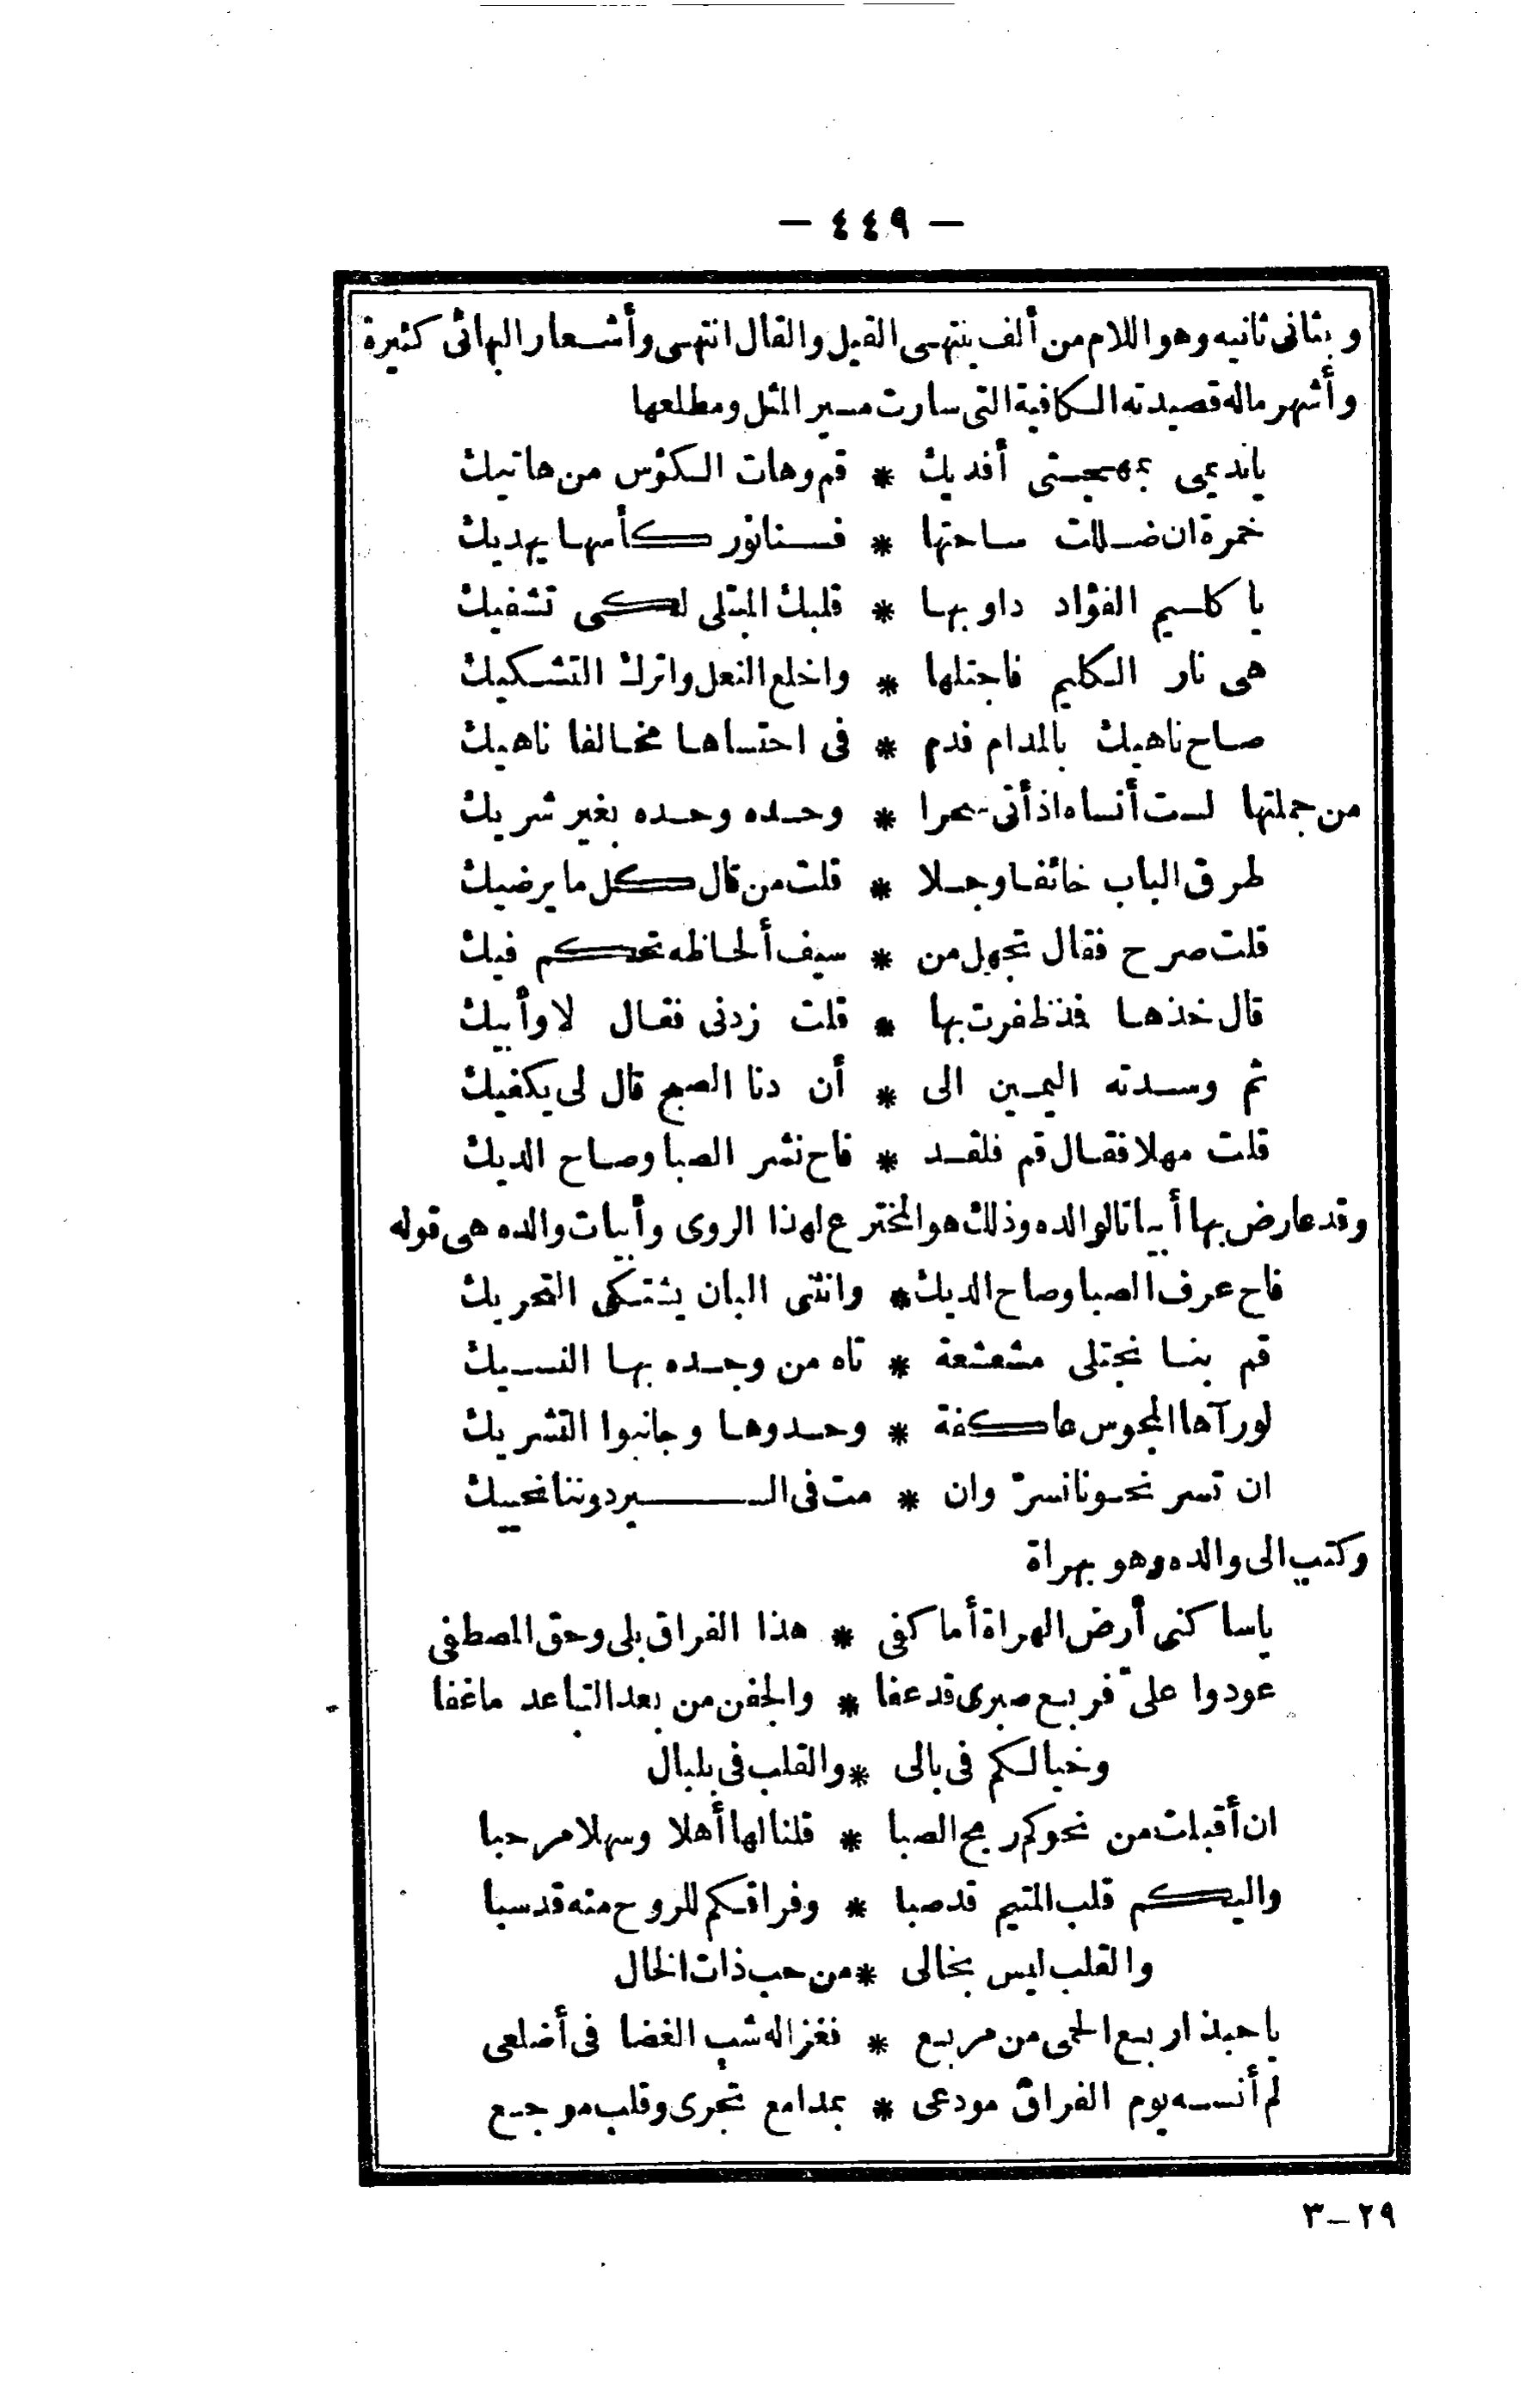 — ٤٤٩ —
وبثانى ثانيه وهو اللام من ألف ينتهى القيل والقال انتهى وأشعار البهائى كثيرة
وأشهر ماله قصيدته الكافية التى سارت مسير المثل ومطلعها
ياندیمى بمهجتى أفديك * قم وهات الكؤس من هاتيك
خمرة ان ضللت ساحتها * فسنا نور كأسها يهديك
يا كليم الفؤاد داو بها * قلبك المبتلى لكى تشفيك
هى نار الكليم فاجتلها * واخلع النعل واترك التشكيك
صاح ناهيك بالمدام فدم * فى احتساها مخالفا ناهيك
من جملتها لست أنساه اذ أتى سحرا * وحده وحده بغير شريك
طرق الباب خائفا وجلا * قلت من قال كل ما يرضيك
قلت صرح فقال تجهل من * سيف ألحاظه تحكم فيك
قال خذها فذ ظفرت بها * قلت زدنى فقال لا وأبيك
ثم وسدته اليمين الى * أن دنا الصبح قال لى يكفيك
قلت مهلا فقال قم فلقد * فاح نشر الصبا وصاح الديك
وقد عارض بها أبياتا لوالده وذلك هو المخترع لهذا الروى وأبيات والده هى قوله
فاح عرف الصبا وصاح الديك * وانثنى البان يشتكى التحريك
قم بنا نجتلى مشعشعة * تاه من وجده بها النسيك
لو رآها المجوس عاكفة * وحدوها وجانبوا التشريك
ان تسر نحونا نسرّ وان * مت فى السير دوننا نحييك
وكتب الى والده وهو بهراة
ياساكنى أرض الهراة أما كفى * هذا الفراق بلى وحق المصطفى
عودوا علىّ فربع صبرى قد عفا * والجفن من بعد التباعد ماغفا
وخيالكم فى بالى * والقلب فى بلبال
ان أقبلت من نحوكم ريح الصبا * قلنا لها أهلا وسهلا مرحبا
واليكم قلب المتيم قد صبا * وفراقكم للروح منه قد سبا
والقلب ليس بخالى * من حب ذات الخال
ياحبذا ربع الحمى من مربع * فغزاله شب الغضا فى أضلعى
لم أنسه يوم الفراق مودعى * بمدامع تجرى وقلب موجع
٢٩ — ٣